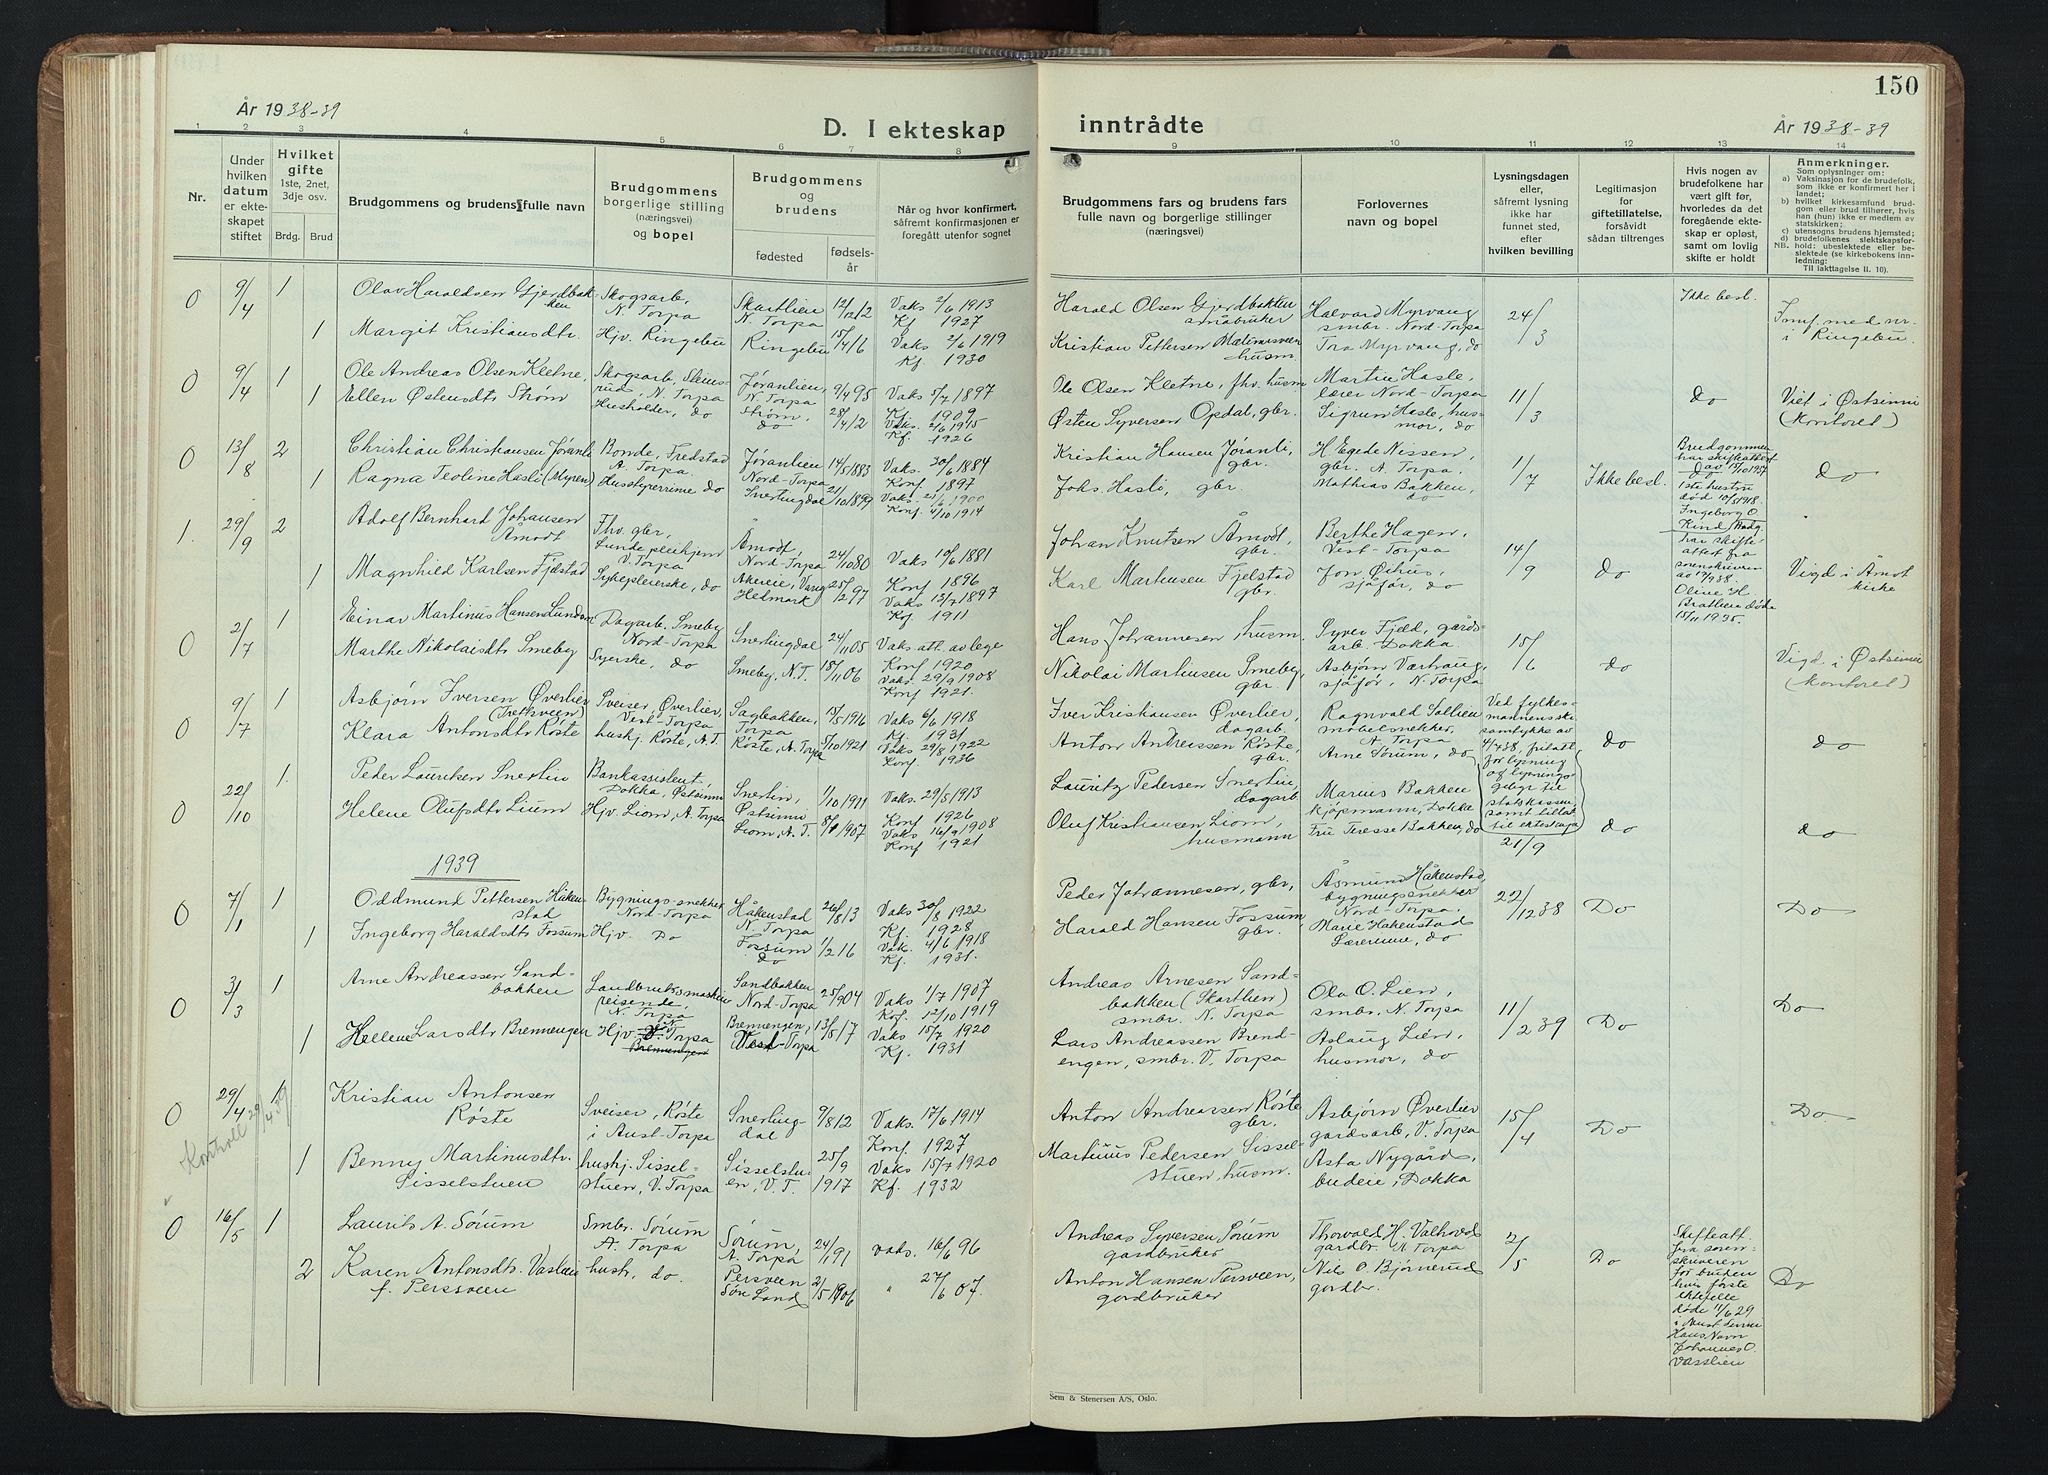 150
År 1938-39
D. I ekteskap
inntrådte
År 1938-39
1 2 3 4 5 6 7 8 9 10 11 12 13 14
Nr.
Under hvilken datum er ekteskapet stiftet
Hvilket gifte
1ste, 2net, 3dje osv.
Brdg. Brud
Brudgommens og brudens fulle navn
Brudgommens borgerlige stilling (næringsvei) og bopel
Brudgommens og brudens
fødested
fødselsår
Når og hvor konfirmert, såfremt konfirmasjonen er foregått utenfor sognet
Brudgommens fars og brudens fars fulle navn og borgerlige stillinger (næringsvei)
Forlovernes navn og bopel
Lysningsdagen eller, såfremt lysning ikke har funnet sted, efter hvilken bevilling
Legitimasjon for giftetillatelse, forsåvidt sådan tiltrenges
Hvis nogen av brudefolkene har vært gift før, hvorledes da det foregående ekteskap er opløst, samt om lovlig skifte er holdt
Anmerkninger.
Som oplysninger om:
a) Vaksinasjon for de brudefolk, som ikke er konfirmert her i landet;
b) hvilket kirkesamfund brudgom eller brud tilhører, hvis han (hun) ikke er medlem av statskirken;
c) utensogns brudens hjemsted;
d) brudefolkenes slektskapsforhold: ubeslektede eller beslektede (se kirkebokens innledning:
NB.
Til iakttagelse II. 10).
0 9/4 1 Olav Haraldsen Gjerdbakken Skogsarb. N. Torpa Skartlien N. Torpa 12/12/2 Vaks 2/6 1913 Kf 1927 Harald Olsen Gjerdbakken småbruker Halvard Myrvang smbr. Nord-Torpa 24/3 Ikke besl.
1 Margit Kristiansdtr. Hjv. Ringebu Ringebu 15/4/6 Vaks 2/6 1919 Kf. 1930 Kristian Pettersen husm Tora Myrvang, do i Ringebu.
0 9/4 1 Ole Andreas Olsen Kletne, Skogsarb, N. Torpa Jøranlien, N. Torpa 9/4 95 Vaks 5/7 1897 Kf. 1909 Ole Olsen Kletne, fhv. husm Martin Hasle, lærer Nord-Torpa 11/3 do Viet i Østsinni (Kontoret)
1 Ellen Østensdtr Strøm Husholder, do Strøm, do 28/4/2 Vaks. 2/6 1915 Kf. 1926 Østen Syversen Opdal, gbr. Sigrun Hasle, husmor, do
0 13/8 2 Christian Christiansen Jøranli Bonde, Fredstad A. Torpa Jøranlien Nord-Torpa 14/5 1883 Vaks. 30/6 1884 Konf 1897 Kristian Hansen Jøranli, gbr. H. Egede Nissen, gbr. A. Torpa. 1/7 Ikke besl. do
1 Ragna Teoline Hasli (Myren) Husstyrerinne do Snertingdal 21/10 1899 Vaks. 21/6 1900 Konf. 4/10 1914 Johs. Hasli, gbr. Mathias Bakken, do
1ste hustru død 10/5 1918. Ingeborg O Kind
1. 29/9 2 Adolf Bernhard Johansen Åmodt Fhv. gbr, Lunde pleiehjem V. Torpa Åmodt, Nord-Torpa 24/10 80 Vaks 10/6 1881 Konf 1896 Johan Knutsen Åmodt, gbr. Berthe Hagen, Vest-Torpa 14/9 do Vigd i Åmot kirke
1 Magnhild Karlsen Fjelstad Sykepleierske, do 25/2 97 Vaks 13/7 1897 Kf. 1911 Karl Martinsen Fjelstad gbr. Jon sjåfør, do
Har skifteattest fra sorenskriveren Oline H. Bratlien døde 15/11 1935.
0 2/7 1 Einar Martinus Hansen Lunden Dagarb. Smeby Nord-Torpa Snertingdal 24/11 05 Vaks att. av lege Konf 1920 Hans Johannesen husm. Syver Fjeld, gårdsarb. Dokka 15/6 do Vigd i Østsinni (kontoret)
Marthe Nikolaisdtr Smeby Syerske, do Smeby, N.T. 15/11 06 Vaks 29/9 1908 Konf 1921. Nikolai Martinsen Smeby, gbr. Asbjørn Værtrang, sjåfør, N. Torpa
0 9/7 1 Asbjørn Iversen Øverlier (Trettsveen) Sveiser, Øverlier, Vest-Torpa Sagbakken, Torpa 15/5 1916 Vaks 6/6 1918 Kf. 1931 Iver Kristiansen Øverlier, dagarb. Ragnvald Sollien møbelsnekker, A. Torpa do do
Klara Antonsdtr Røste hushj. Røste, A.T. Røste, A. Torpa 5/10 1921 Vaks 29/8 1922 Konf. 1936 Anton Andreassen Røste, gbr. Arne Sørum, do
Ved fylkesmannens skr. samtykke av 4/7 38, fritatt for lysning og lysningsgebyr til statskassen, samt tillatt til ekteskap
0 22/10 1. Peder Lauritsen Snertin Bankassistent Dokka, Østsinni Snertin, Østsinni 1/10 1911 Vaks. 29/5 1913 Konf 1926 Lauritz Pedersen Snertin, dagarb Marius Bakken kjøpmann, Dokka 21/9 do do
Helene Olufsdtr Lium Hjv. Liom, A. Torpa Liom, A.T. 8/9 1907 Vaks 16/9 1908 Konf 1921 Oluf Kristiansen Liom, husmann Fru Teresse Bakken, do
1939
0 7/1 1 Oddmund Pettersen Håkenstad Bygningssnekker Nord-Torpa Håkenstad N. Torpa 26/8 13 Vaks 30/8 1922 Kf. 1928 Peder Johannesen, gbr, Åsmund Håkenstad, bygningssnekker Nord-Torpa, 22/12 38 Do Do
1 Ingeborg Haraldsdtr Fossum Hjv. Do Fossum do 1/2 16 Vaks. 4/6 1918 Kf. 1931. Harald Hansen Fossum, gbr. Marie Håkenstad Lærerinne, do
0 3/3 1 Arne Andreassen Sandbakken Landbruksmaskin reisende N. Torpa Sandbakken Nord-Torpa 25/9 04 Vaks 1/7 1907 Kof. 12/10 1919 Andreas Arnesen Sandbakken (Skartlien) smbr. N. Torpa Ola O. Lien, smbr. N. Torpa 11/2 39 Do Do
1 Hellene Larsdtr Brennengen Hjv. V. Torpa Brennengen Brennengen, Vest-Torpa 13/5 17 Vaks 15/7 1920 Kf. 1931. Lars Andreassen Brendengen, smbr. V. Torpa Aslaug Lien, husmor, do
0 29/4 1 Kristian Antonsen Røste Sveiser, Røste i Aust-Torpa Snertingdal 9/8 12 Vaks. 17/6 1914 Konf. 1927 Anton Andreassen Røste gbr. Asbjørn Øverlier gardsarb, V. Torpa 15/4 Do Do
Kontroll 29/4 39
1 Benny Martinusdtr. Sisselstuen hushj. Sisselstuen, V. Torpa Sisselstuen, V.T. 25/9 1917 Vaks 15/7 1920 Kf. 1932 Martinus Pedersen Sisselstuen, husm. Asta Nygård, budeie, Dokka
0 16/5 1 Laurits A. Sørum Smbr. Sørum A. Torpa Sørum, A. Torpa 24/1 91 vaks. 16/6 96 Andreas Syversen Sørum gardbruker Thorvald H. Valhovd gardbr. A Torpa 2/5 Do Do
2 Karen Antonsdtr. Vaslien f. Persveen hustr. do. Persveen Søn Land 2/5 1906 " 27/6 07. Anton Hansen Persveen, gordbruker Nils O. Bjørnerud gordbr.
Skifteatt. fra sorenskriveren for bruden hvis første ektefelle døde 11/6 29 Hans Navn Johannes O. Vasslien
Sem & Stenersen A/S, Oslo.